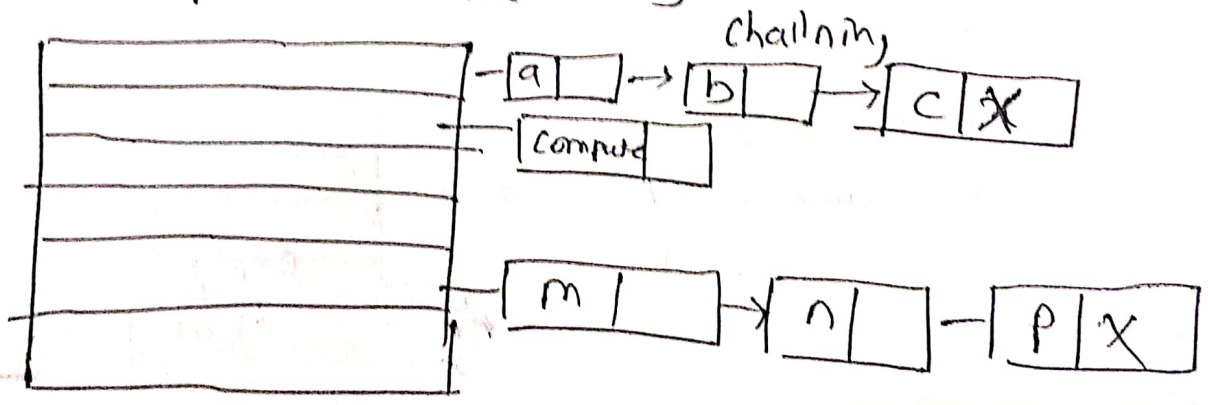 Chaining
a b c X
Compute
m n p X